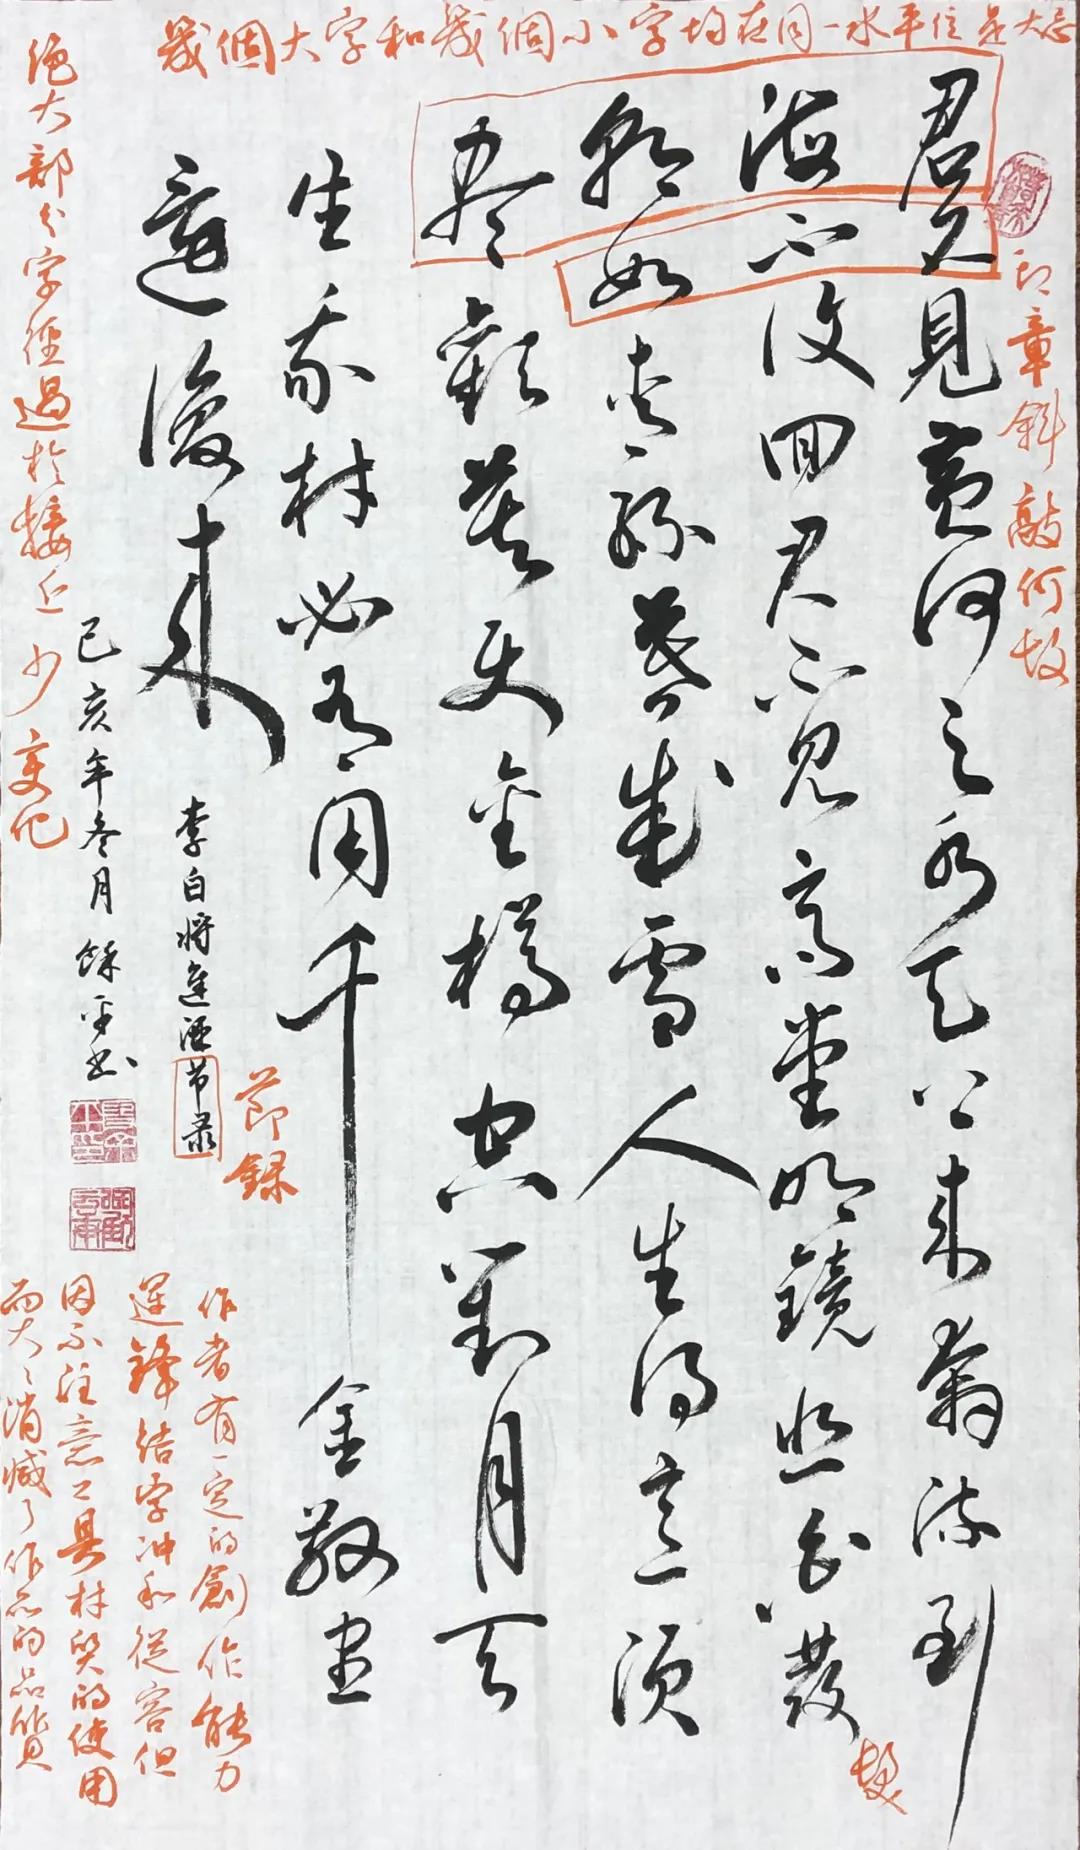 幾個大字和幾個小字均在同一水平位是大忌
君不見黄河之水天上来奔流到
海不復回君不見高堂明鏡悲白發
朝如青絲暮成雪人生得意須
盡歡莫使金樽空對月天
生我材必有用千金散盡
還復来
李白将進酒节录
己亥年冬月 餘平书
印章斜敲何故
髮
節録
絕大部分字徑過於接近少变化
作者有一定的創作能力
運鋒結字冲和從容但
因不注意工具材質的使用
而大々消減了作品的品質